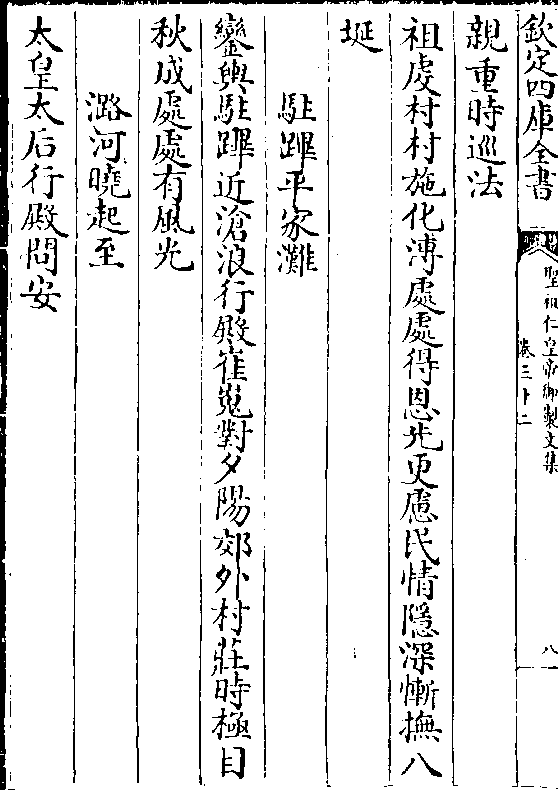 欽定四庫全書
聖祖仁皇帝御製文集
卷三十二
八
親重時巡法
祖虔村村施化溥處處得恩光更慮民情隱深慚撫八
埏
駐蹕平家灘
鑾輿駐蹕近滄浪行殿崔嵬對夕陽郊外村莊時極目
秋成處處有風光
潞河曉起至
太皇太后行殿問安